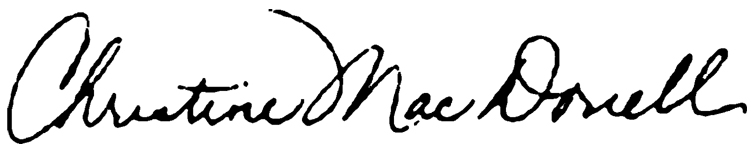 Christine MacDonell